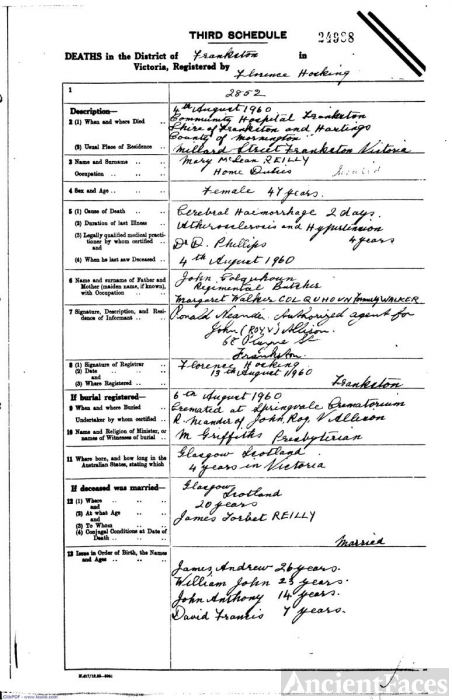 THIRD SCHEDULE
24968
DEATHS in the District of Frankston in
Victoria, Registered by Florence Hocking
1
2852
Description—
2 (1) When and where Died
4th August 1960
Community Hospital Frankston
Shire of Frankston and Hastings
County of Mornington
(2) Usual Place of Residence
Millard Street Frankston Victoria
3 Name and Surname
Mary McLean REILLY
Occupation
Home Duties
4 Sex and Age
Female 47 years.
5 (1) Cause of Death
Cerebral Haemorrhage 2 days.
(2) Duration of last Illness
Atherosclerosis and Hypertension
4 years
(3) Legally qualified medical practitioner by whom certified and
Dr D. Phillips
(4) When he last saw Deceased
4th August 1960
6 Name and surname of Father and Mother (maiden name, if known), with Occupation
John Colquhoun
Regimental Butcher
Margaret Walker COLQUHOUN formerly WALKER
7 Signature, Description, and Residence of Informant
Ronald Neander Authorized agent for
John (Roy V) Allison.
Frankston.
8 (1) Signature of Registrar
Florence Hocking
(2) Date and
13th August 1960
(3) Where Registered
Frankston
If burial registered—
9 When and where Buried
6th August 1960
Cremated at Springvale Crematorium
Undertaker by whom certified
R. Neander of John, Roy V Allison
10 Name and Religion of Minister, or names of Witnesses of burial
M Griffiths Presbyterian
11 Where born, and how long in the Australian States, stating which
Glasgow Scotland
4 years in Victoria
If deceased was married—
12 (1) Where and
Glasgow
Scotland
(2) At what Age and
20 years
(3) To Whom
James Torbet REILLY
(4) Conjugal Conditions at Date of Death
Married
13 Issue in Order of Birth, the Names and Ages
James Andrew 26 years.
William John 23 years.
John Anthony 14 years.
David Francis 7 years.
AncientFaces